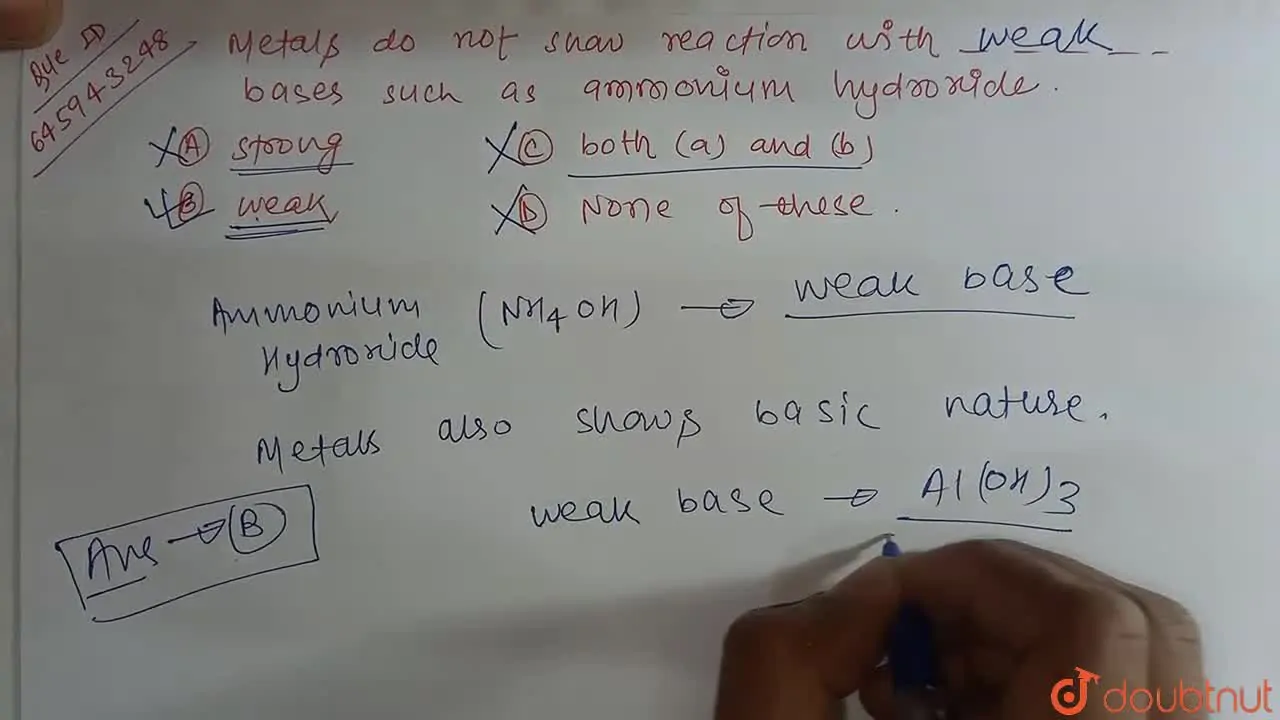 Que ID
645943248
Metals do not show reaction with weak
bases such as ammonium hydroxide.
(A) strong (C) both (a) and (b)
(B) weak (D) None of these.
Ammonium (NH4OH) → weak base
Hydroxide
Metals also shows basic nature.
weak base → Al(OH)3
Ans → (B)
doubtnut